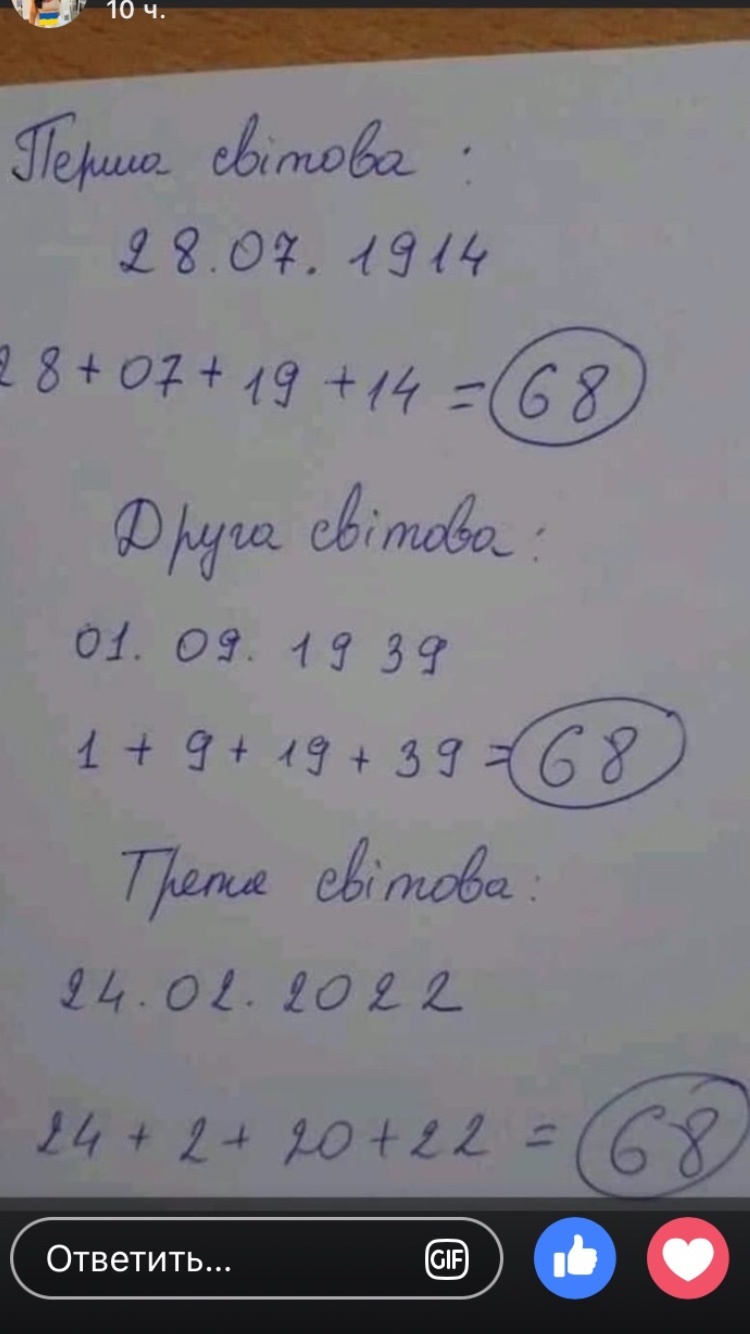 10 ч.
Перша світова :
28.07. 1914
28+07+19+14=68
Друга світова:
01. 09. 1939
1+9+19+39=68
Третя світова:
24.02.2022
24+2+20+22=68
Ответить...
GIF